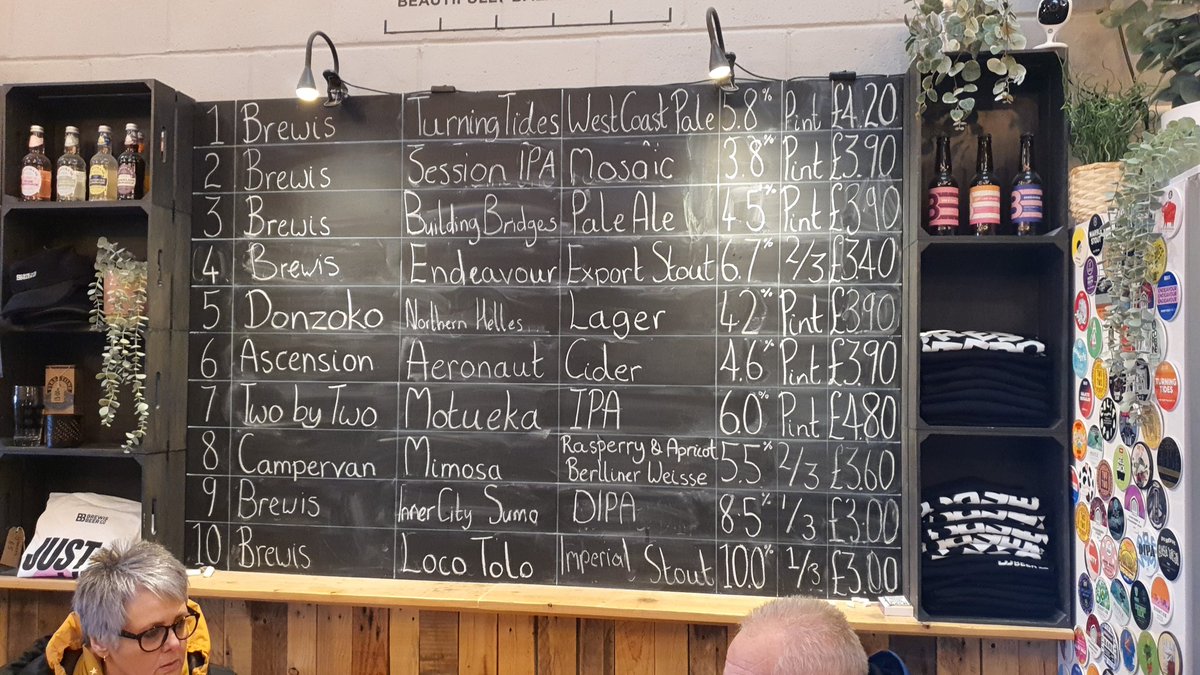 1 Brewis Turning Tides West Coast Pale 5.8% Pint £4.20
2 Brewis Session IPA Mosaic 3.8% Pint £3.90
3 Brewis Building Bridges Pale Ale 4.5% Pint £3.90
4 Brewis Endeavour Export Stout 6.7% 2/3 £3.40
5 Donzoko Northern Helles Lager 4.2% Pint £3.90
6 Ascension Aeronaut Cider 4.6% Pint £3.90
7 Two by Two Motueka IPA 6.0% Pint £4.80
8 Campervan Mimosa Rasperry & Apricot Berlliner Weisse 5.5% 2/3 £3.60
9 Brewis Inner City Sumo DIPA 8.5% 1/3 £3.00
10 Brewis Loco Tolo Imperial Stout 10.0% 1/3 £3.00
BREWIS
BEER CO
JUST
TURNING
TIDES